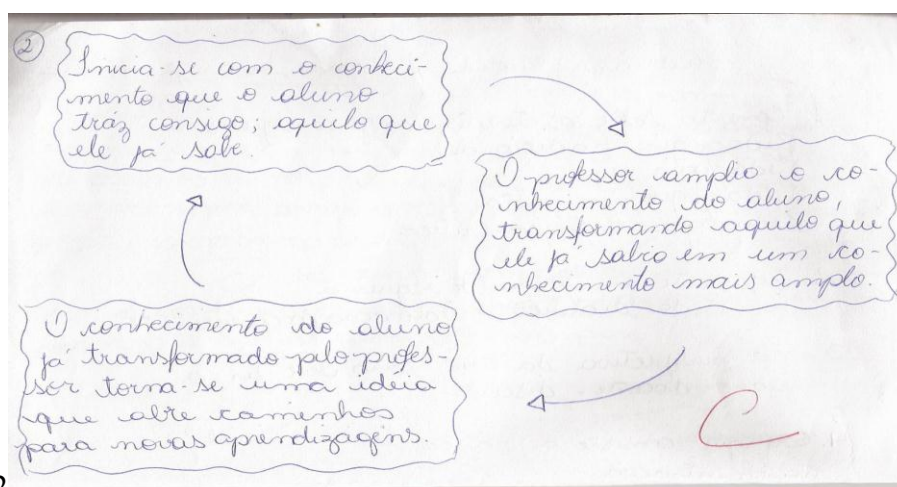 2
Inicia-se com o conheci-
mento que o aluno
tráz consigo; aquilo que
ele já sabe.
O professor amplia o co-
nhecimento do aluno,
transformando aquilo que
ele já sabia em um co-
nhecimento mais amplo.
O conhecimento do aluno
já transformado pelo profes-
sor torna-se uma idéia
que abre caminhos
para novas aprendizagens.